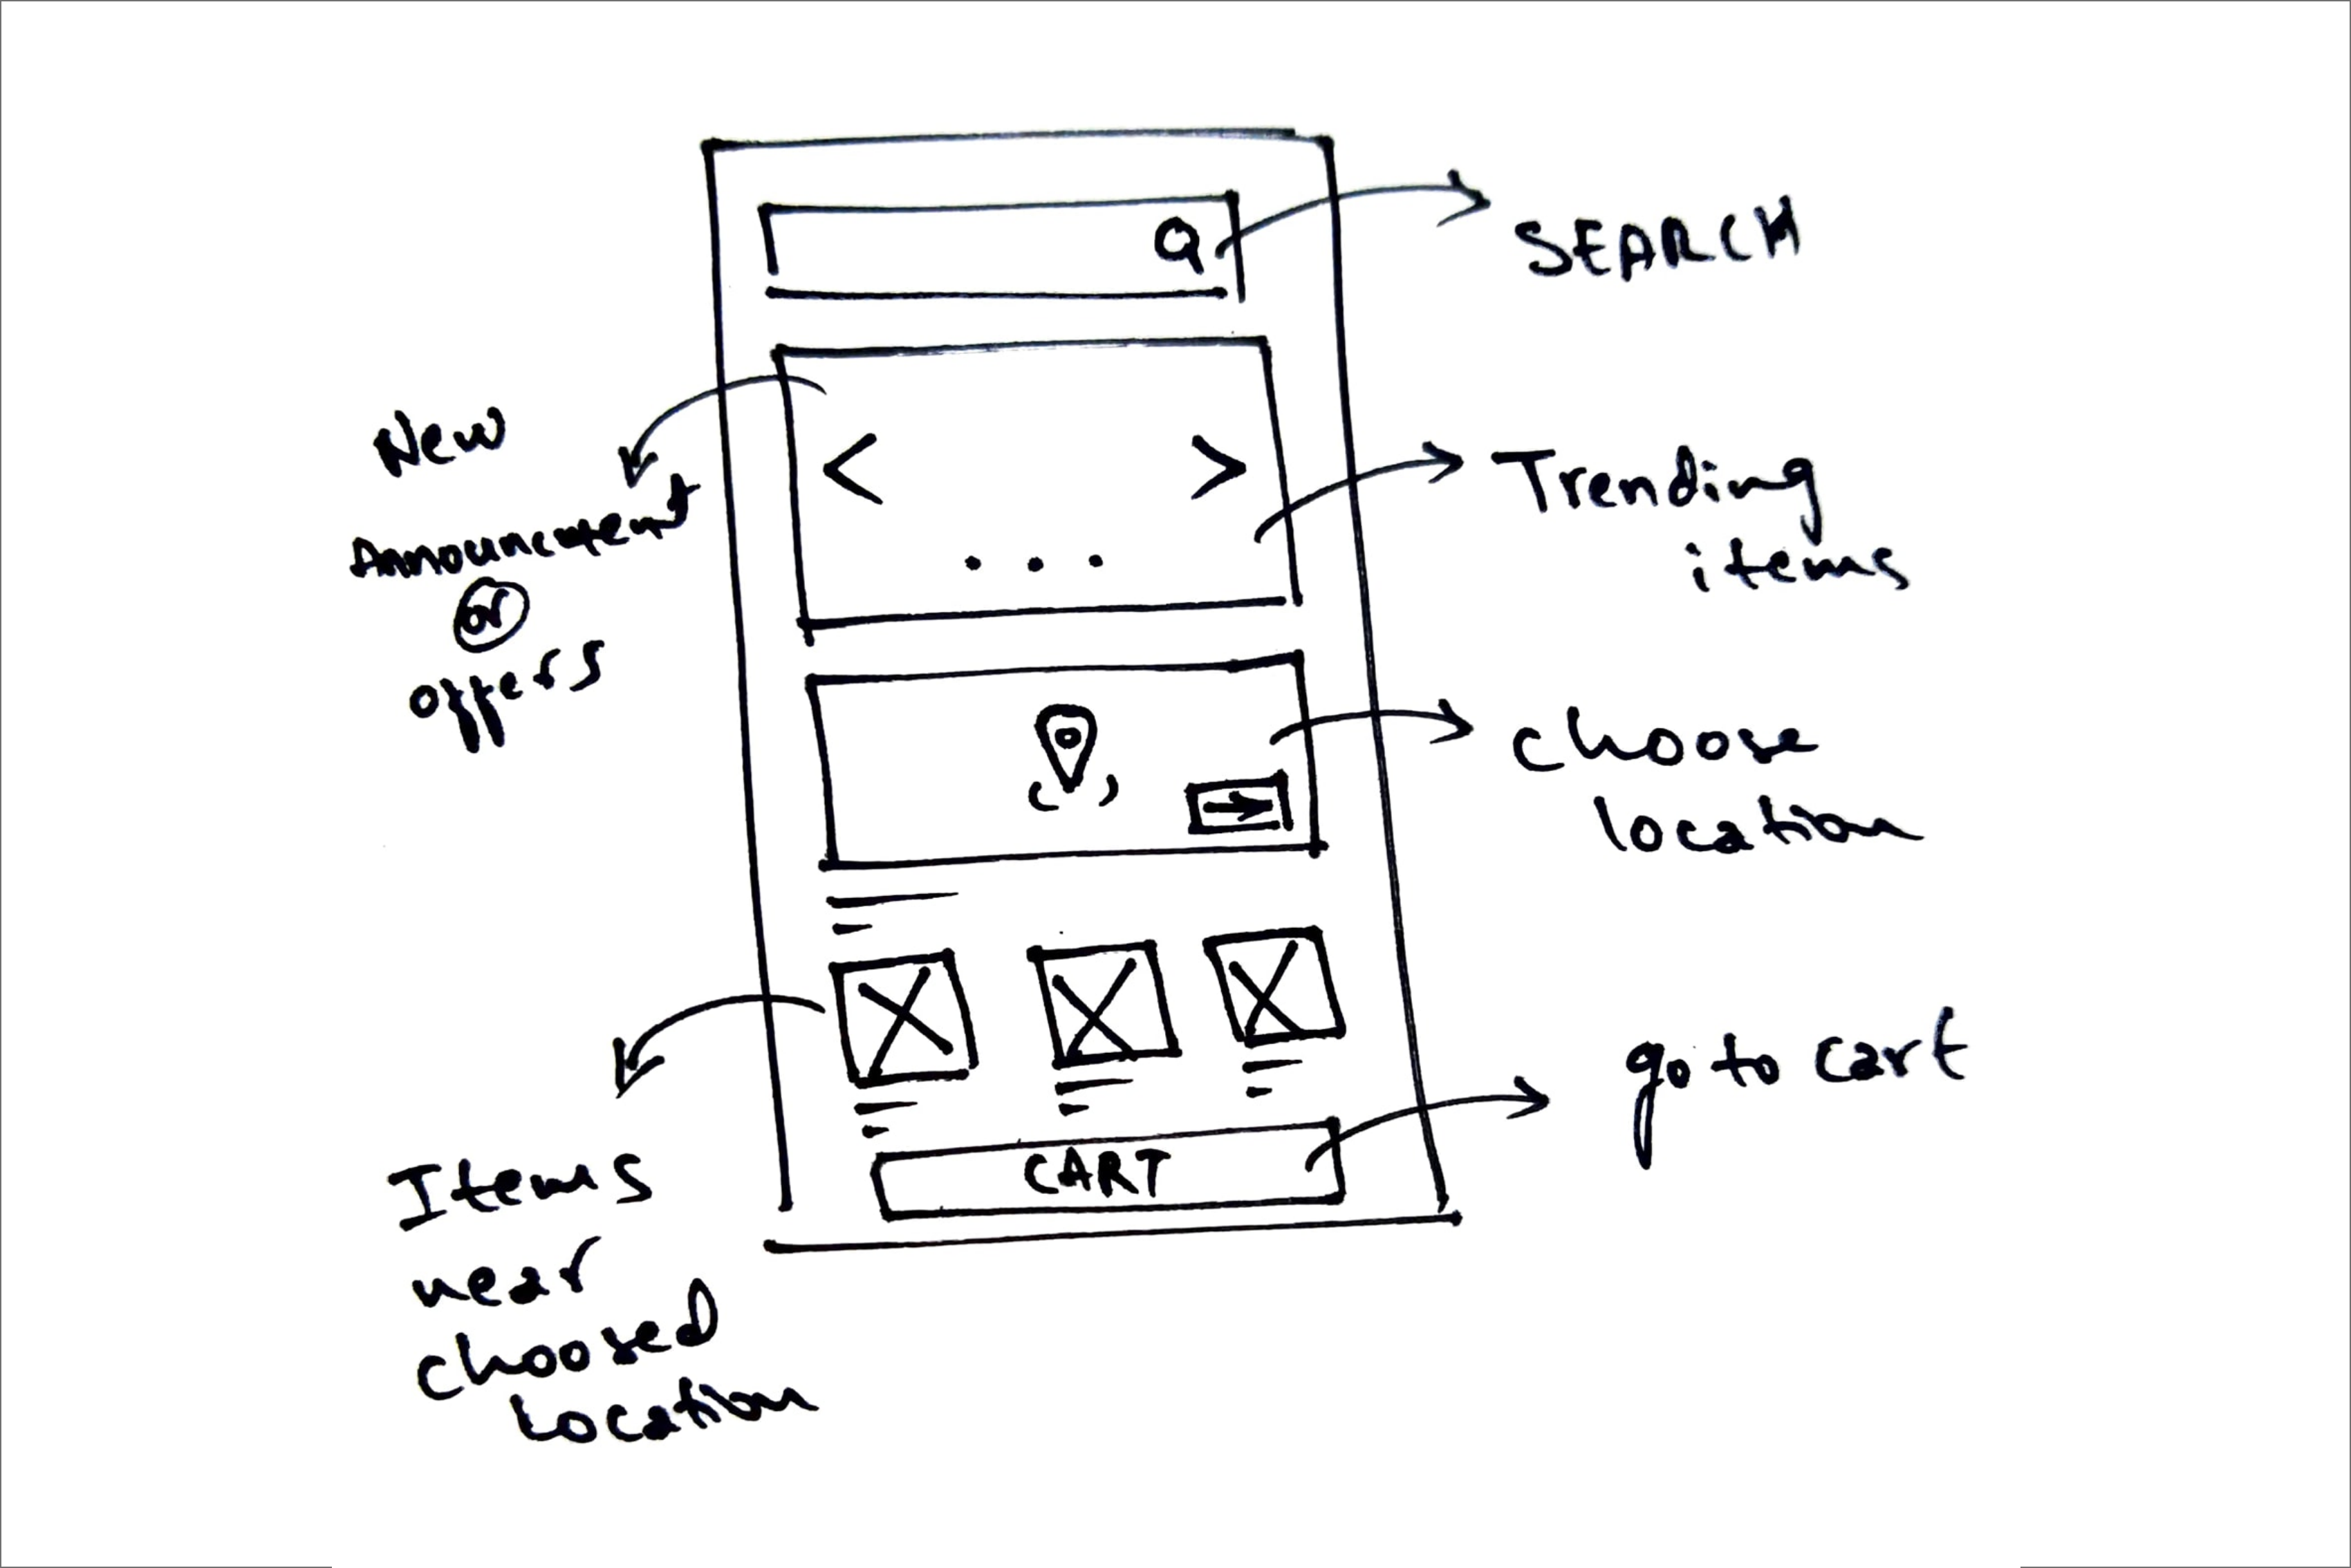 SEARCH
New
Announcement
or
offers
Trending
items
choose
location
Items
near
choosed
location
go to cart
CART